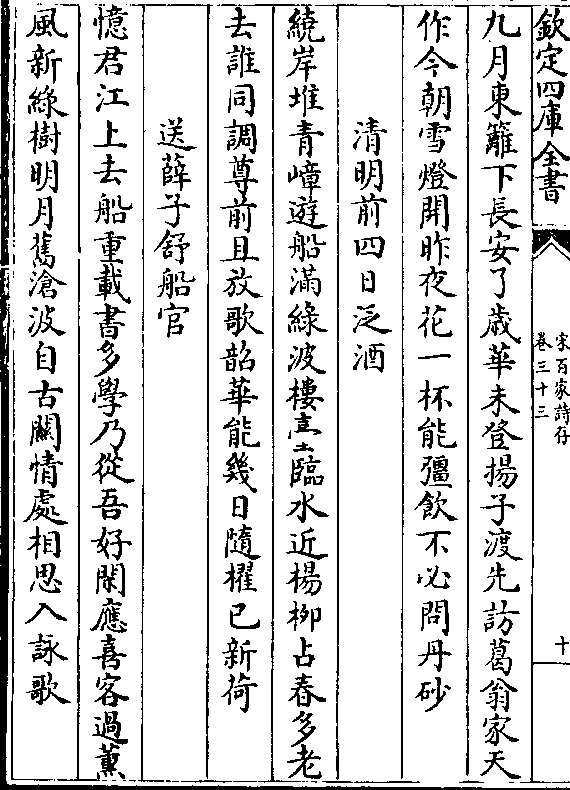 欽定四庫全書
宋百家詩存
卷三十三
十
九月東籬下長安了歲華未登揚子渡先訪葛翁家天
作今朝雪燈開昨夜花一杯能彊飲不必問丹砂
清明前四日泛酒
繞岸堆青嶂遊船滿綠波樓臺臨水近楊柳占春多老
去誰同調尊前且放歌韶華能幾日隨櫂已新荷
送薛子舒船官
憶君江上去船重載書多學乃從吾好閑應喜客過薫
風新綠樹明月舊滄波自古關情處相思入詠歌